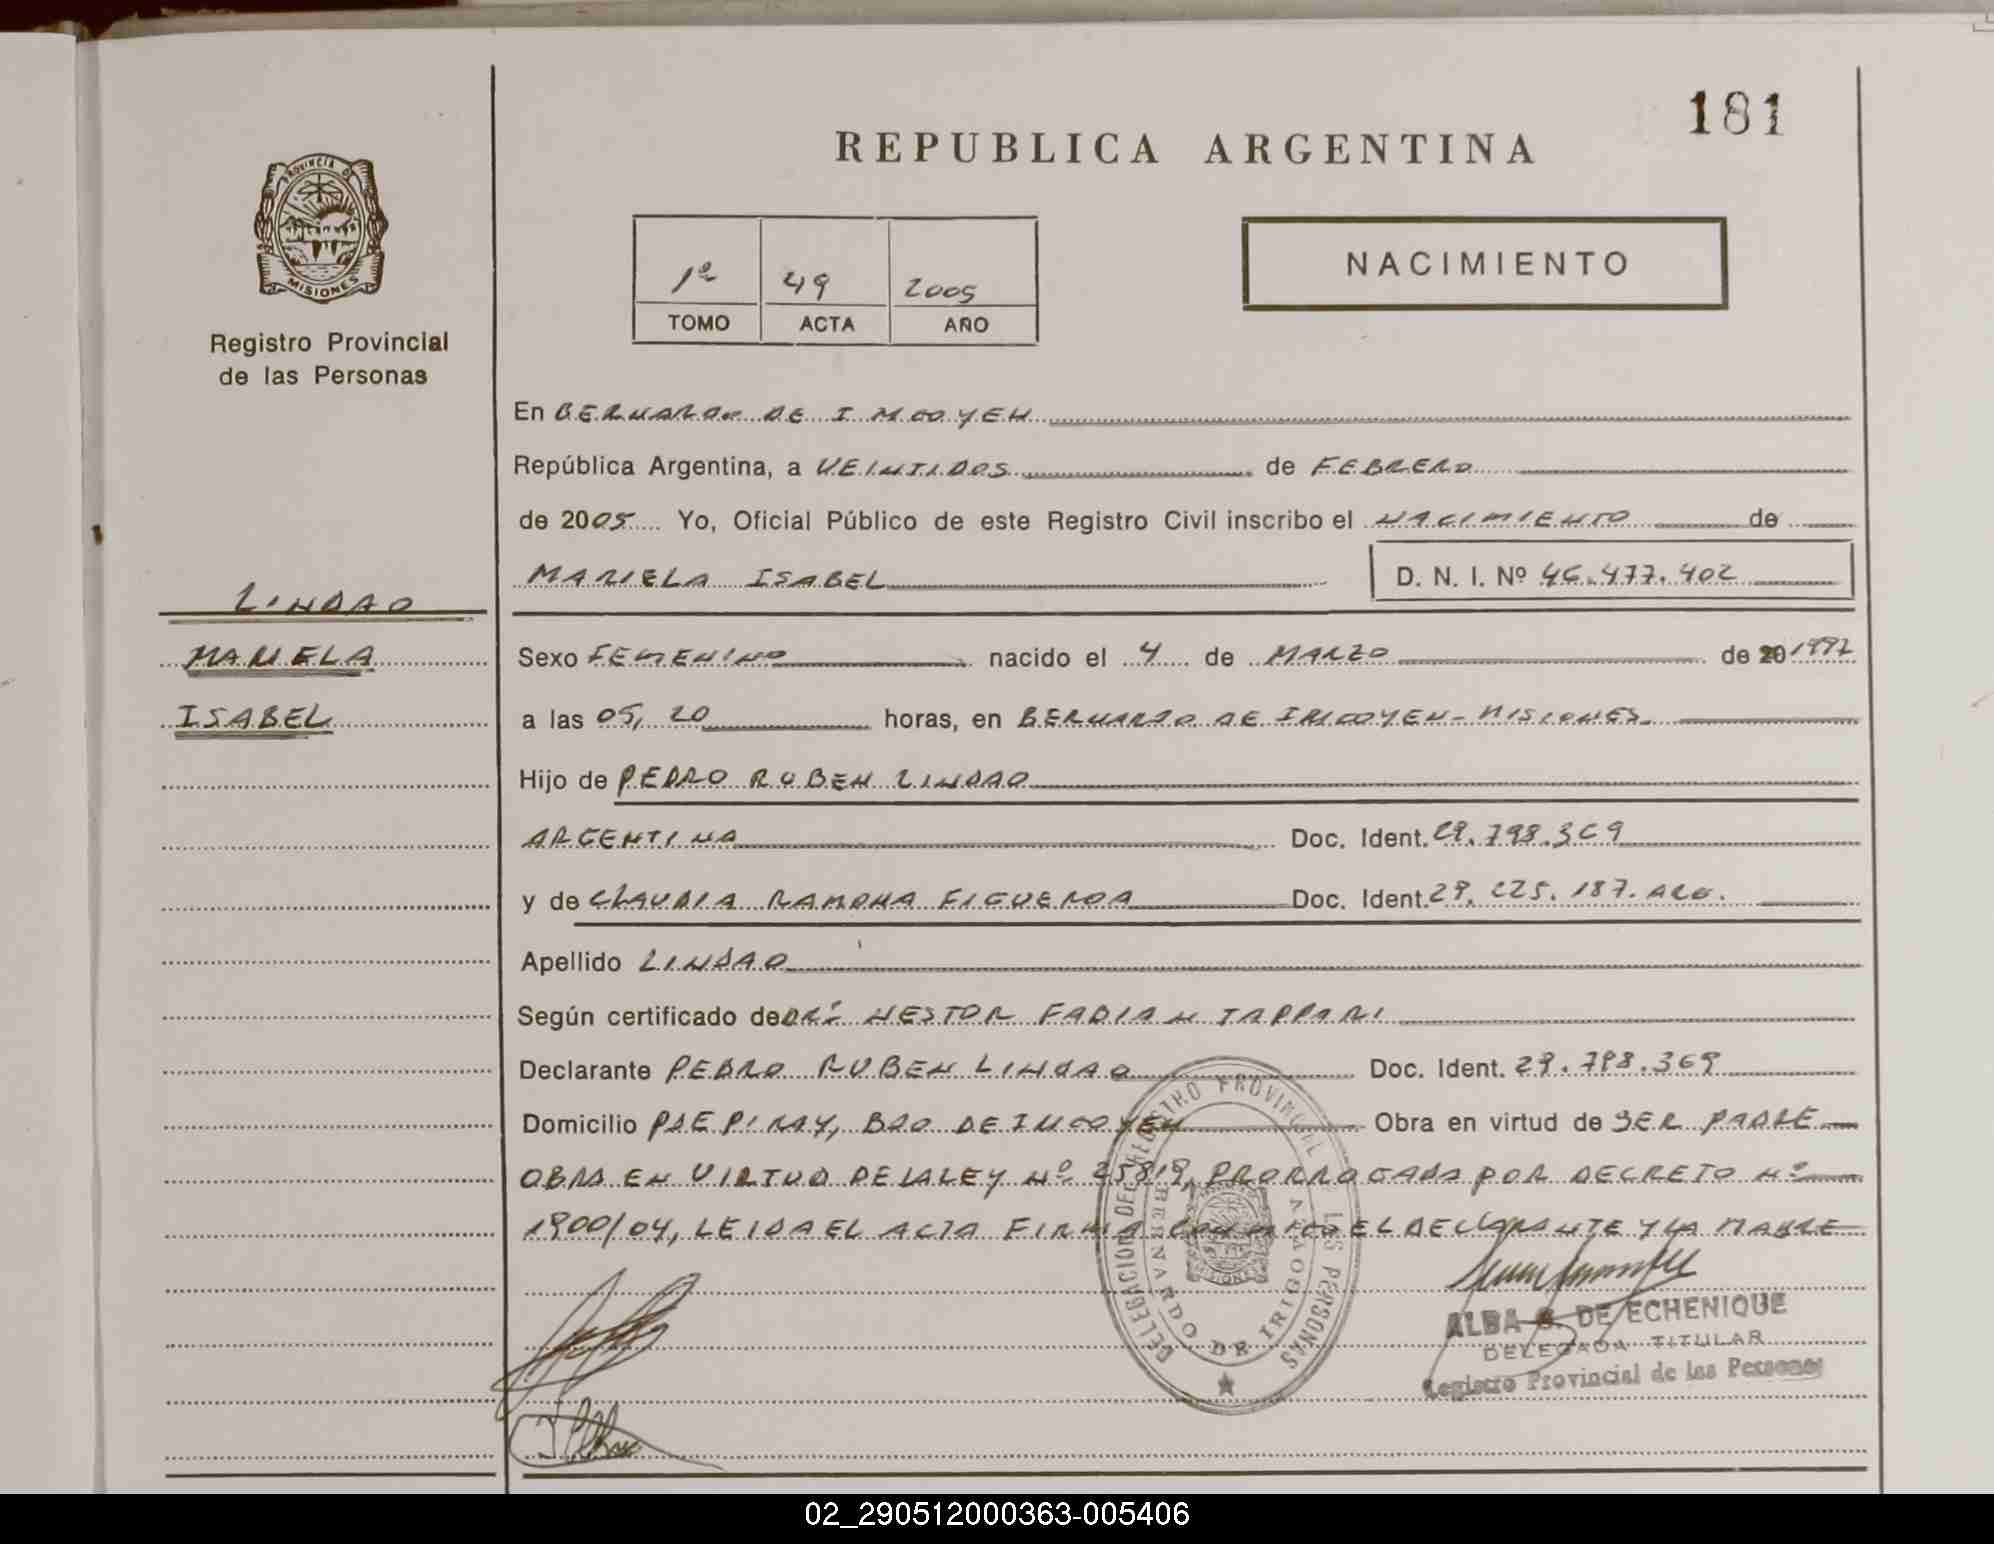 181
REPUBLICA ARGENTINA
PROVINCIA DE
MISIONES
Registro Provincial
de las Personas
1º 49 2005
TOMO ACTA AÑO
NACIMIENTO
En BERNARDO DE IRIGOYEN
República Argentina, a VEINTIDOS de FEBRERO
de 2005 Yo, Oficial Público de este Registro Civil inscribo el NACIMIENTO de
MARIELA ISABEL D. N. I. Nº 46.477.402
LINDAO
MARIELA
ISABEL
Sexo FEMENINO nacido el 4 de MARZO de 20 1992
a las 05,20 horas, en BERNARDO DE IRIGOYEN-MISIONES
Hijo de PEDRO RUBEN LINDAO
ARGENTINA Doc. Ident. 29.798.369
y de CLAUDIA RAMONA FIGUEROA Doc. Ident. 29.225.187. ARG.
Apellido LINDAO
Según certificado de DR: NESTOR FABIAN TAPPARI
Declarante PEDRO RUBEN LINDAO Doc. Ident. 29.798.369
Domicilio PJE PIRAY, BDO DE IRIGOYEN Obra en virtud de SER PADRE
OBRA EN VIRTUD DE LA LEY Nº 25819, PRORROGADA POR DECRETO Nº
1900/04, LEIDA EL ACTA FIRMA CONMIGO EL DECLARANTE Y LA MADRE
DELEGACION DEL REGISTRO PROVINCIAL DE LAS PERSONAS
BERNARDO DE IRIGOYEN
MISIONES
ALBA S. DE ECHENIQUE
DELEGADA TITULAR
Registro Provincial de las Personas
02_290512000363-005406